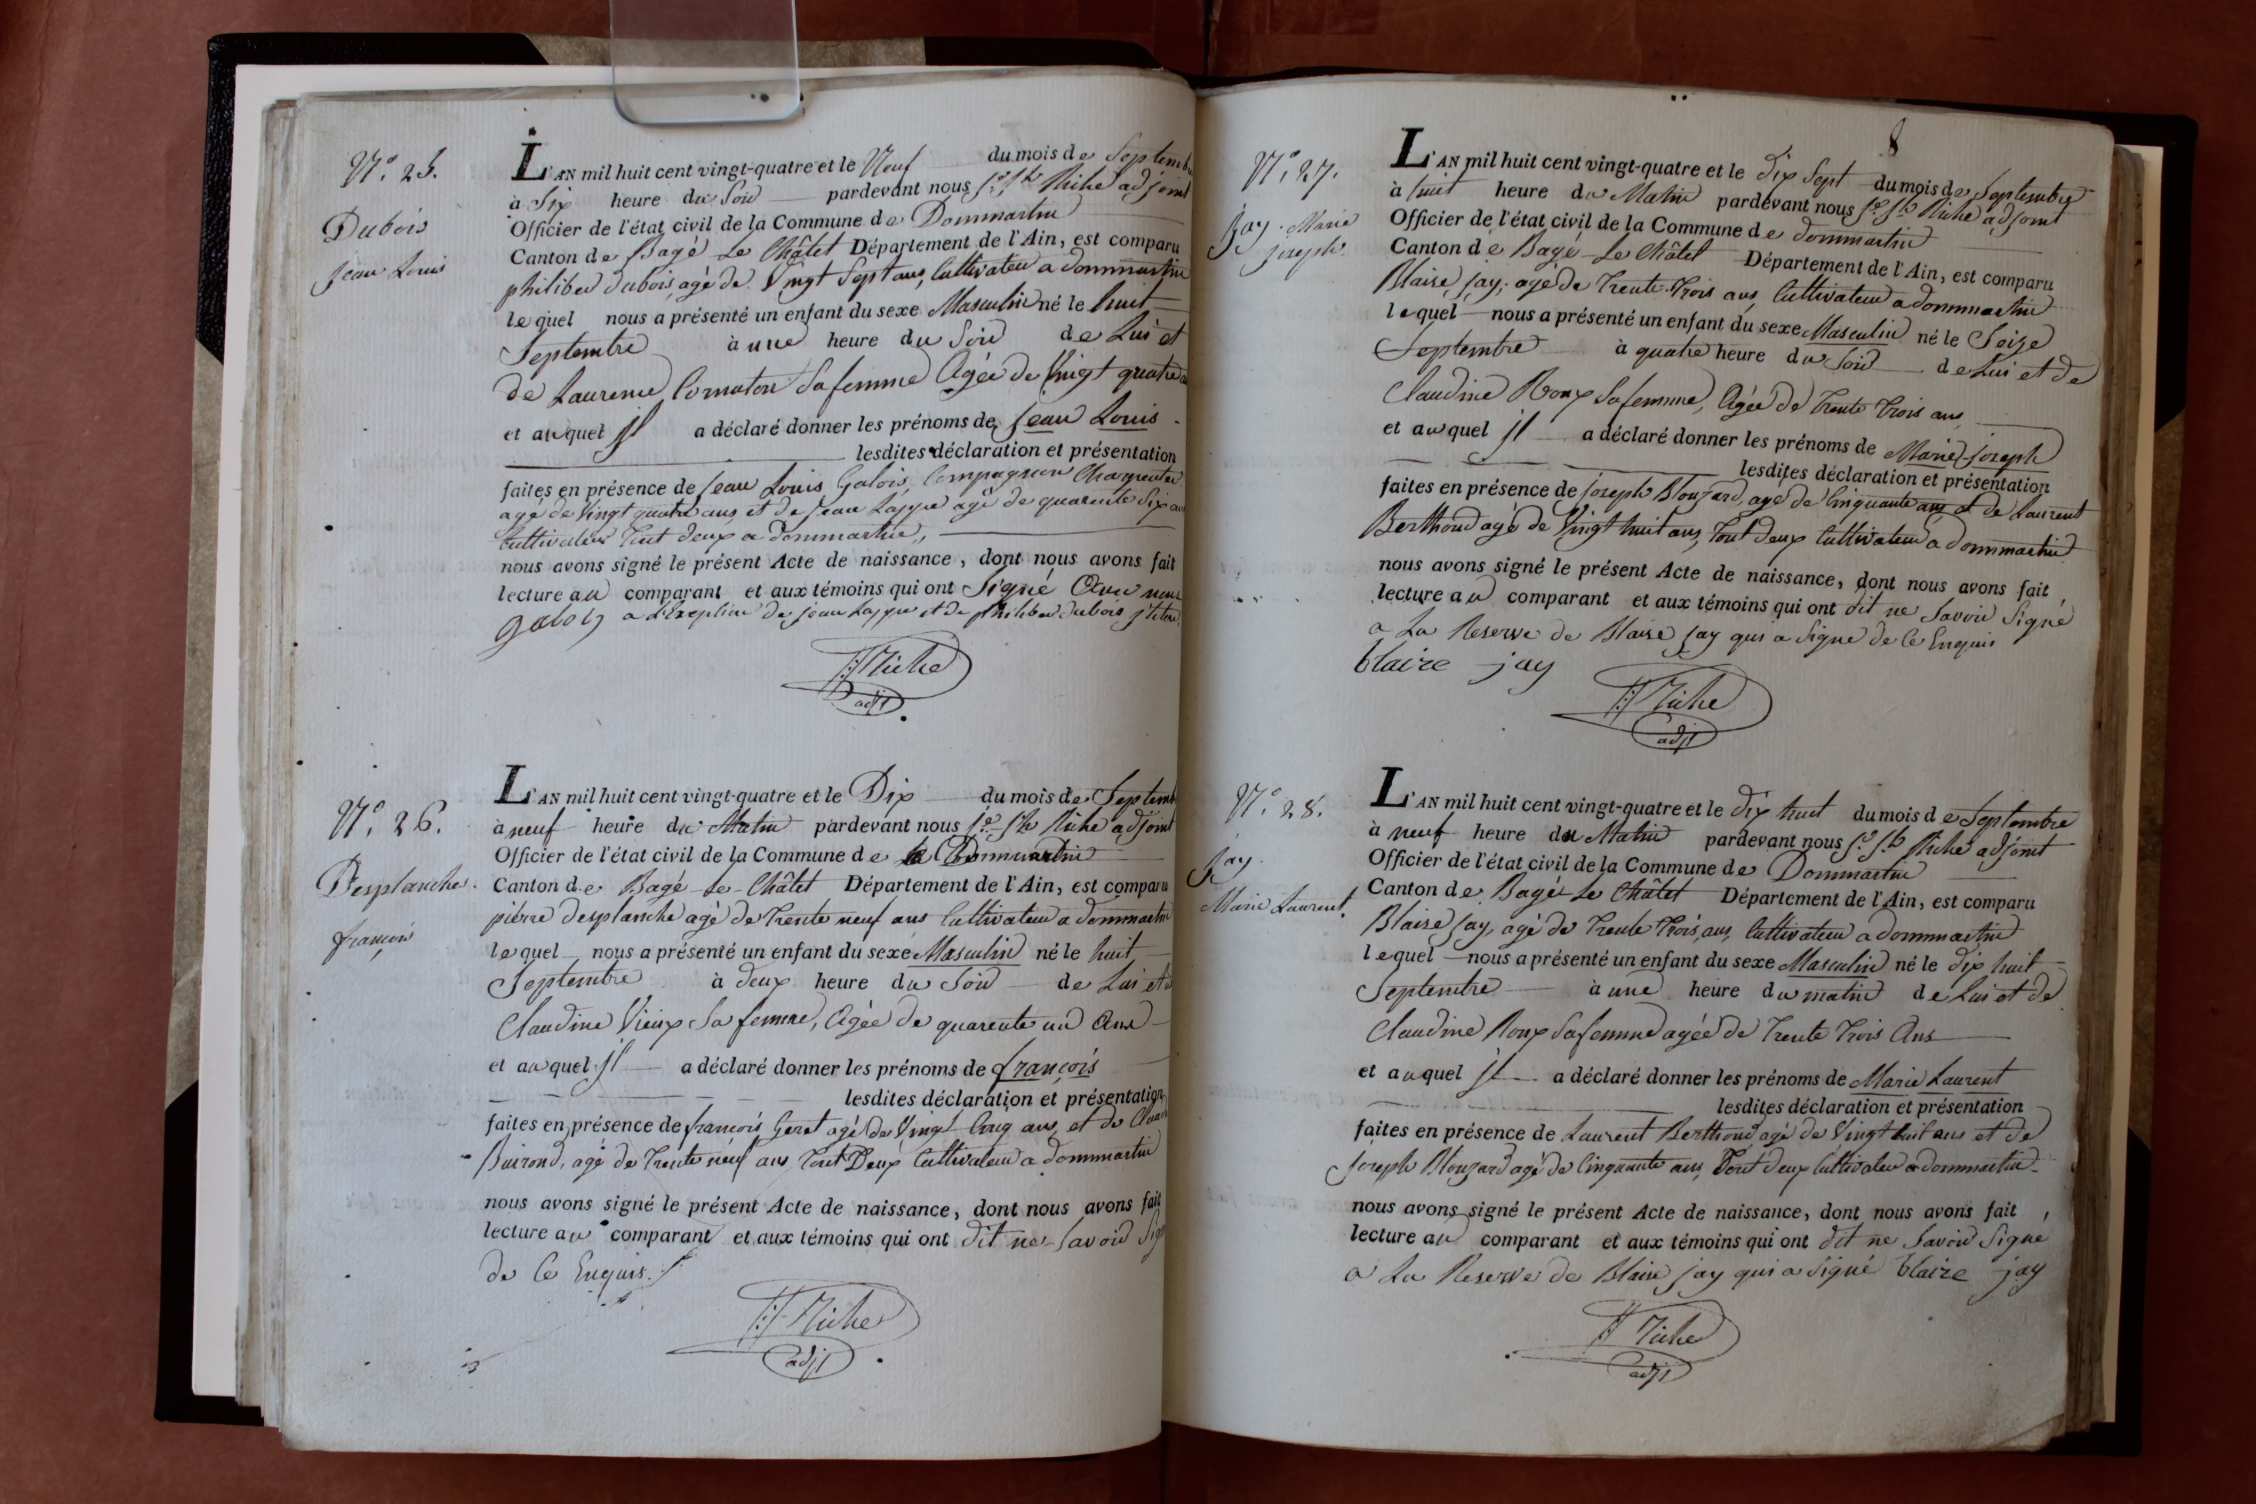 N.° 25.
Dubois
Jean Louis
L'AN mil huit cent vingt-quatre et le Neuf du mois de Septembre
à Six heure du Soir pardevant nous Riche adjoint
Officier de l'état civil de la Commune de Dommartin
Canton de Bagé Le Châtel Département de l'Ain, est comparu
philiber dubois, agé de Vingt Sept ans, Cultivateur a dommartin
lequel nous a présenté un enfant du sexe Masculin né le huit
Septembre à une heure du Soir de Lui et
de Laurence Comaton Sa femme Agée de Vingt quatre
et auquel jl a déclaré donner les prénoms de Jean Louis
lesdites déclaration et présentation
faites en présence de Jean Louis Galois, Compagnon Charpentier
agé de Vingt quatre ans, et de Jean Layye agé de quarente Six ans
Cultivateur Tout deux a dommartin,
nous avons signé le présent Acte de naissance, dont nous avons fait
lecture au comparant et aux témoins qui ont Signé Avec nous
galois a L'exeption de jean Layye et de philiber dubois
Riche
adjt
N.° 26.
Desplanche.
françois
L'AN mil huit cent vingt-quatre et le Dix du mois de Septemb
à neuf heure du Matin pardevant nous Riche adjoint
Officier de l'état civil de la Commune de Dommartin
Canton de Bagé Le Châtel Département de l'Ain, est comparu
pierre desplanche agé de Trente neuf ans Cultivateur a dommartin
lequel nous a présenté un enfant du sexe Masculin né le huit
Septembre à deux heure du Soir de Lui et
Claudine Vieux Sa femme, Agée de quarente un Ans
et auquel jl a déclaré donner les prénoms de françois
lesdites déclaration et présentation
faites en présence de françois Geret agé de Vingt Cinq ans, et de
Buirond, agé de Trente neuf ans Tout Deux Cultivateur a dommartin
nous avons signé le présent Acte de naissance, dont nous avons fait
lecture au comparant et aux témoins qui ont dit ne Savoir Sig
de Ce Enquis.
Riche
adjt
8
N.° 27.
Jay. Marie
joseph
L'AN mil huit cent vingt-quatre et le dix Sept du mois de Septembre
à huit heure du Matin pardevant nous Riche adjoint
Officier de l'état civil de la Commune de dommartin
Canton de Bagé Le Châtel Département de l'Ain, est comparu
Blaise Jay, agé de Trente Trois ans, Cultivateur a dommartin
lequel nous a présenté un enfant du sexe Masculin né le Seize
Septembre à quatre heure du Soir de Lui et de
Claudine Roux Sa femme, Agée de Trente Trois ans,
et auquel jl a déclaré donner les prénoms de Marie joseph
lesdites déclaration et présentation
faites en présence de joseph Blouzard agé de Cinquante ans et de Laurent
Berthoud agé de Vingt huit ans, Tout deux Cultivateur a dommartin
nous avons signé le présent Acte de naissance, dont nous avons fait
lecture au comparant et aux témoins qui ont dit ne Savoir Signé
a La Reserve de Blaise Jay qui a Signé de Ce Enquis
blaize jay
Riche
adjt
N.° 28.
Jay.
Marie Laurent.
L'AN mil huit cent vingt-quatre et le dix huit du mois de Septembre
à neuf heure du Matin pardevant nous Riche adjoint
Officier de l'état civil de la Commune de Dommartin
Canton de Bagé Le Châtel Département de l'Ain, est comparu
Blaise Jay, agé de Trente Trois ans, Cultivateur a dommartin
lequel nous a présenté un enfant du sexe Masculin né le dix huit
Septembre à une heure du matin de Lui et de
Claudine Roux Sa femme agée de Trente Trois Ans
et auquel jl a déclaré donner les prénoms de Marie Laurent
lesdites déclaration et présentation
faites en présence de Laurent Berthoud agé de Vingt huit ans et de
joseph Blouzard agé de Cinquante ans, Tout deux Cultivateur a dommartin
nous avons signé le présent Acte de naissance, dont nous avons fait
lecture au comparant et aux témoins qui ont dit ne Savoir Signé
a La Reserve de Blaise jay qui a Signé blaize jay
Riche
adjt